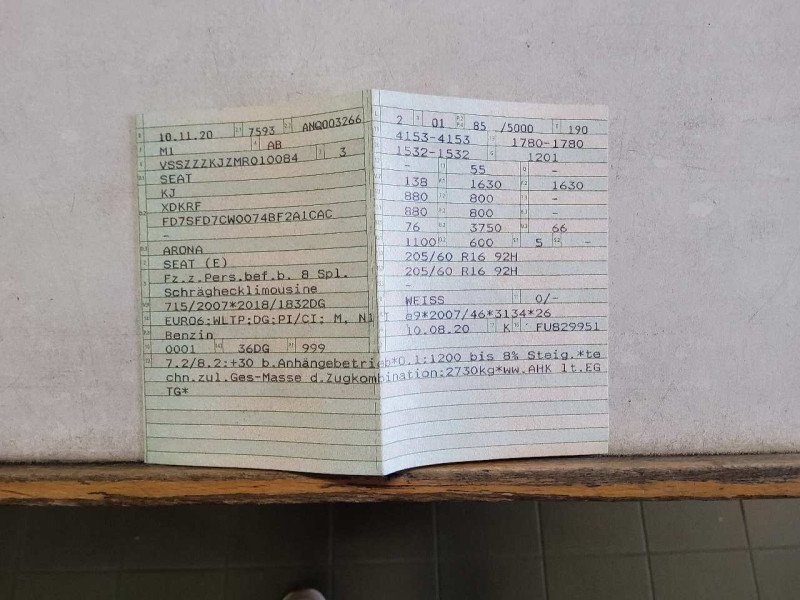 10.11.20 7593 ANQ003266
M1 AB
VSSZZZKJZMR010084 3
SEAT
KJ
XDKRF
FD7SFD7CW0074BF2A1CAC
-
ARONA
SEAT (E)
Fz.z.Pers.bef.b. 8 Spl.
Schräghecklimousine
715/2007*2018/1832DG
EURO6;WLTP;DG;PI/CI; M, N1 I
Benzin
0001 36DG 999
2 01 85 /5000 190
4153-4153 1780-1780
1532-1532 1201
- 55 -
138 1630 1630
880 800 -
880 800 -
76 3750 66
1100 600 5 -
205/60 R16 92H
205/60 R16 92H
-
WEISS 0/-
e9*2007/46*3134*26
10.08.20 K FU829951
7.2/8.2:+30 b.Anhängebetrieb*O.1:1200 bis 8% Steig.*te
chn.zul.Ges-Masse d.Zugkombination:2730kg*ww.AHK lt.EG
TG*